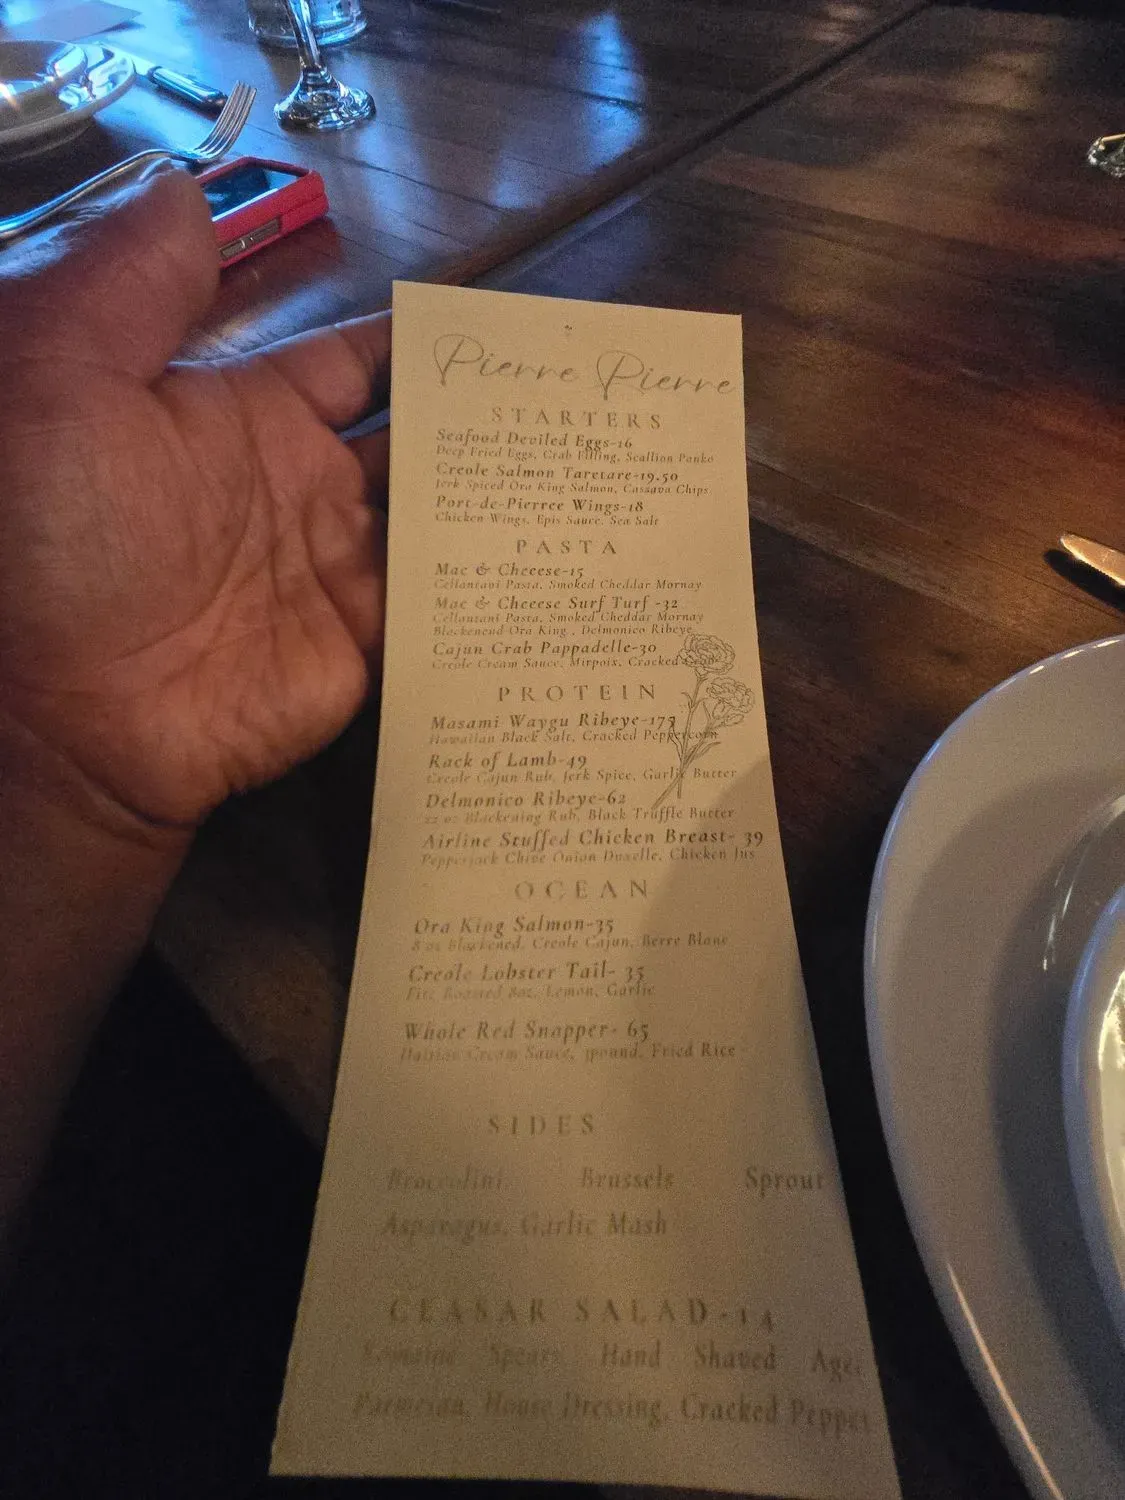 Pierre Pierre
STARTERS
Seafood Deviled Eggs-16
Deep Fried Eggs, Crab Filling, Scallion Panko
Creole Salmon Taretare-19.50
Jerk Spiced Ora King Salmon, Cassava Chips
Port-de-Pierree Wings-18
Chicken Wings, Epis Sauce, Sea Salt
PASTA
Mac & Cheeese-15
Cellantani Pasta, Smoked Cheddar Mornay
Mac & Cheeese Surf Turf -32
Cellantani Pasta, Smoked Cheddar Mornay
Blackenend Ora King , Delmonico Ribeye
Cajun Crab Pappadelle-30
Creole Cream Sauce, Mirpoix, Cracked
PROTEIN
Masami Waygu Ribeye-175
Hawaiian Black Salt, Cracked Peppercorn
Rack of Lamb-49
Creole Cajun Rub, Jerk Spice, Garlic Butter
Delmonico Ribeye-62
22 oz Blackening Rub, Black Truffle Butter
Airline Stuffed Chicken Breast- 39
Pepperjack Chive Onion Duxelle, Chicken Jus
OCEAN
Ora King Salmon-35
8 oz Blackened, Creole Cajun, Berre Blanc
Creole Lobster Tail- 35
Fire Roasted 8oz, Lemon, Garlic
Whole Red Snapper- 65
Haitian Cream Sauce, 3pound, Fried Rice
SIDES
Broccolini, Brussels Sprout
Asparagus, Garlic Mash
CEASAR SALAD-14
Romaine Spears Hand Shaved Aged
Parmesan, House Dressing, Cracked Pepper